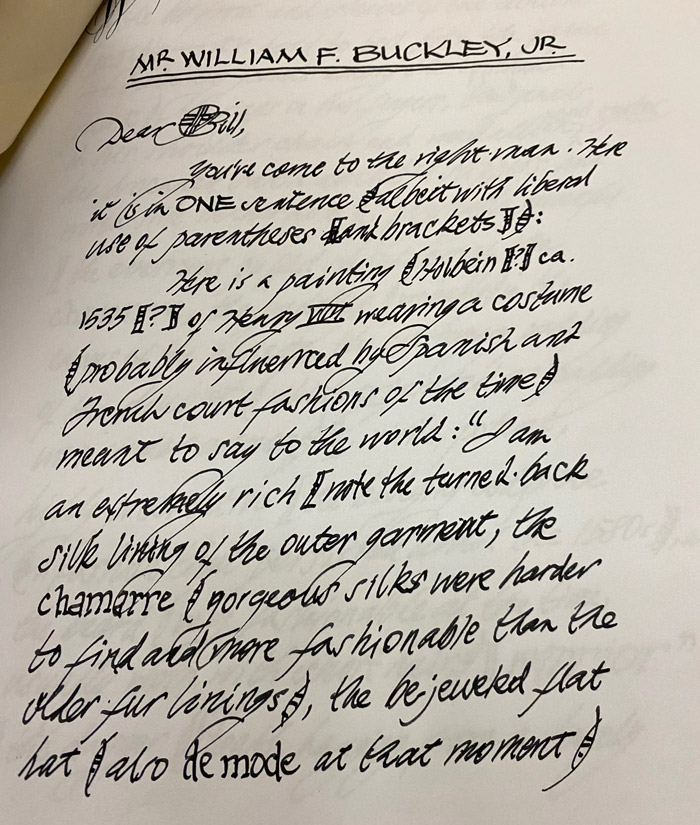 MR. WILLIAM F. BUCKLEY, JR.
Dear Bill,
You're come to the right man. Here
it is in ONE sentence (albeit with liberal
use of parentheses [and brackets]):
Here is a painting (Holbein [?] ca.
1535 [?] of Henry VIII wearing a costume
(probably influenced by Spanish and
French court fashions of the time)
meant to say to the world: "I am
an extremely rich [note the turned-back
silk lining of the outer garment, the
chamarre (gorgeous silks were harder
to find and more fashionable than the
older fur linings), the bejeweled flat
hat (also de mode at that moment)